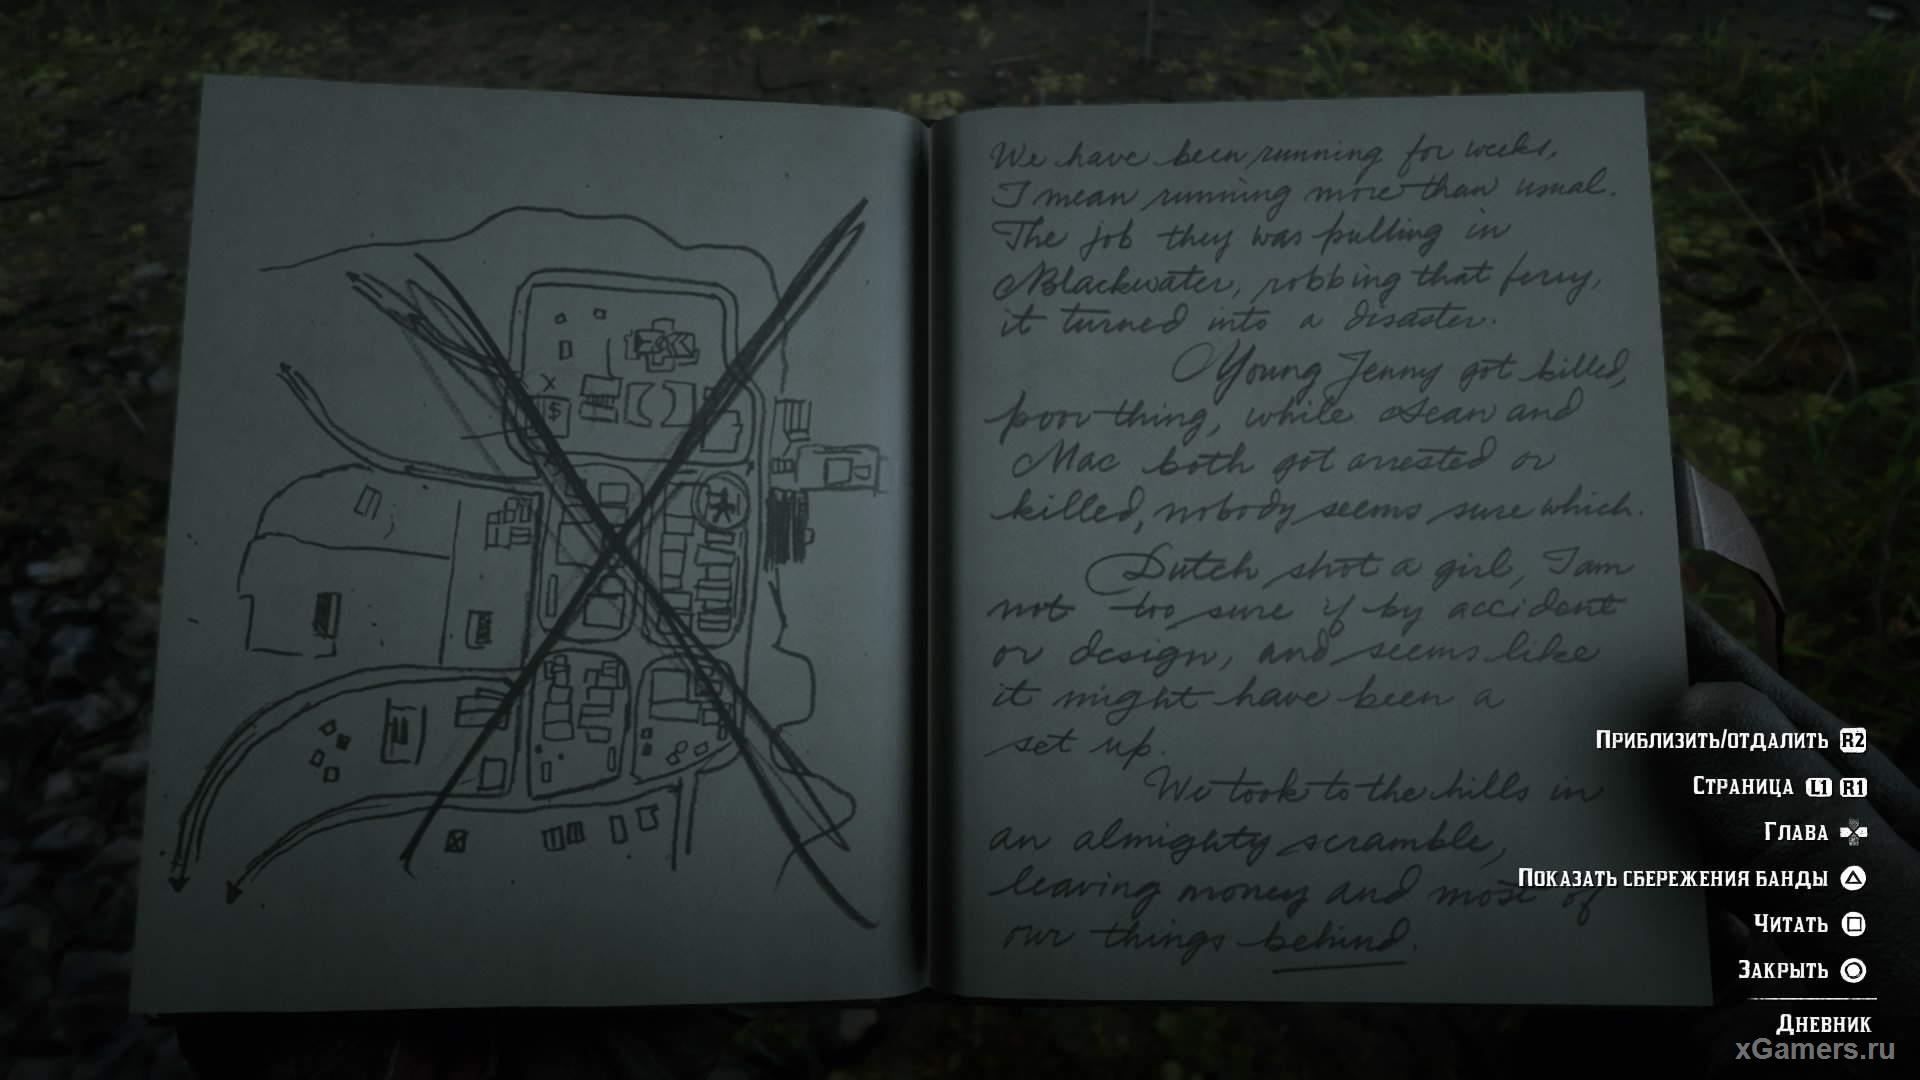 We have been running for weeks,
I mean running more than usual.
The job they was pulling in
Blackwater, robbing that ferry,
it turned into a disaster.
Young Jenny got killed,
poor thing, while Sean and
Mac both got arrested or
killed, nobody seems sure which.
Dutch shot a girl, I am
not too sure if by accident
or design, and seems like
it might have been a
set up.
We took to the hills in
an almighty scramble,
leaving money and most of
our things behind.
X
$
Приблизить/отдалить R2
Страница L1 R1
Глава
Показать сбережения банды
Читать
Закрыть
Дневник
xGamers.ru